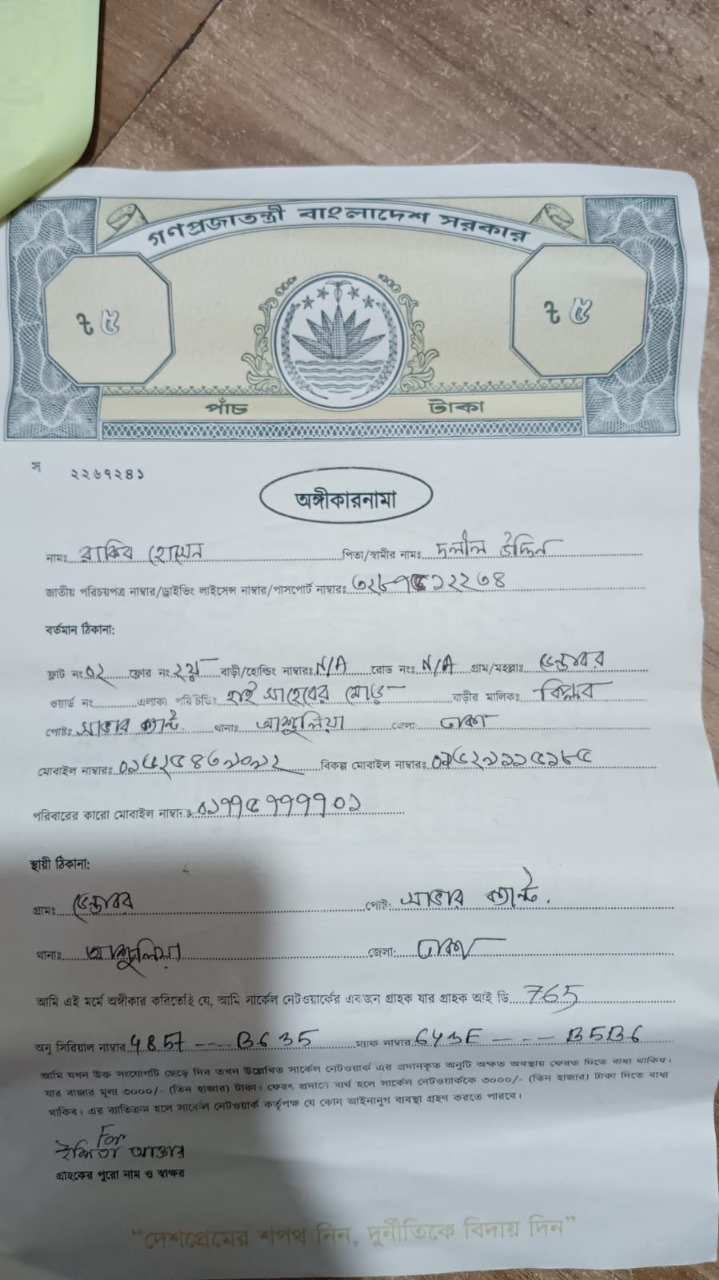 গণপ্রজাতন্ত্রী বাংলাদেশ সরকার
৳ ৫ ৳ ৫
পাঁচ টাকা
স ২২৬৭২৪১
অঙ্গীকারনামা
নামঃ রাকিব হোসেন পিতা/স্বামীর নামঃ দলীল উদ্দিন
জাতীয় পরিচয়পত্র নাম্বার/ড্রাইভিং লাইসেন্স নাম্বার/পাসপোর্ট নাম্বারঃ
বর্তমান ঠিকানা:
ফ্লাট নং ০২ ফ্লোর নং ২য় বাড়ী/হোল্ডিং নাম্বারঃ N/A রোড নংঃ N/A গ্রাম/মহল্লাঃ
ওয়ার্ড নং এলাকা পরিচিতিঃ হাই সাহেবের মোড় বাড়ীর মালিকঃ
পোষ্টঃ সাভার ক্যান্ট থানাঃ আশুলিয়া জেলা ঢাকা
মোবাইল নাম্বারঃ বিকল্প মোবাইল নাম্বারঃ
পরিবারের কারো মোবাইল নাম্বারঃ ০১৭৭৫৭৭৭৭০১
স্থায়ী ঠিকানা:
গ্রামঃ পোষ্ট: সাভার ক্যান্ট.
থানাঃ আশুলিয়া জেলা: ঢাকা
আমি এই মর্মে অঙ্গীকার করিতেছি যে, আমি সার্কেল নেটওয়ার্কের একজন গ্রাহক যার গ্রাহক আই ডি 765
অনু সিরিয়াল নাম্বার 4857 --- B635 ম্যাক নাম্বার 643E - - - B5B6
আমি যখন উক্ত সংযোগটি ছেড়ে দিব তখন উল্লেখিত সার্কেল নেটওয়ার্ক এর প্রদানকৃত অনুটি অক্ষত অবস্থায় ফেরত দিতে বাধ্য থাকিব।
যার বাজার মূল্য ৩০০০/- (তিন হাজার) টাকা। ফেরৎ প্রদানে ব্যর্থ হলে সার্কেল নেটওয়ার্ককে ৩০০০/- (তিন হাজার) টাকা দিতে বাধ্য
থাকিব। এর ব্যতিক্রম হলে সার্কেল নেটওয়ার্ক কর্তৃপক্ষ যে কোন আইনানুগ ব্যবস্থা গ্রহণ করতে পারবে।
For
আক্তার
গ্রাহকের পুরো নাম ও স্বাক্ষর
"দেশপ্রেমের শপথ নিন, দুর্নীতিকে বিদায় দিন"